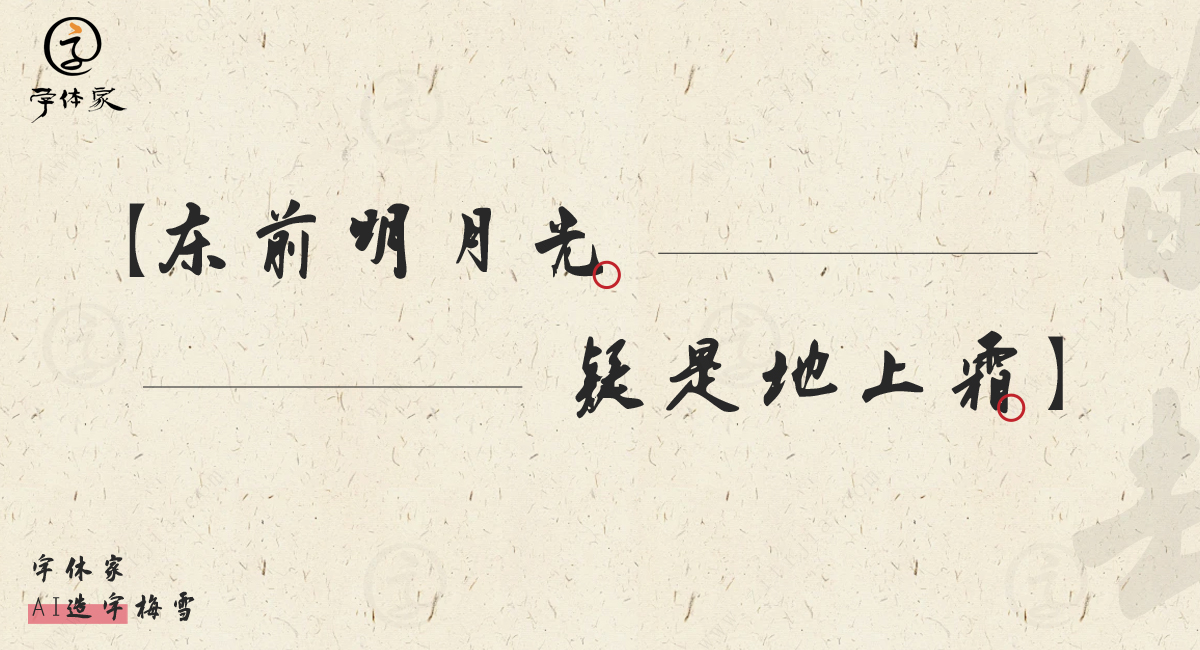 字体家
【东前明月光。
疑是地上霜。】
字体家
AI造字梅雪